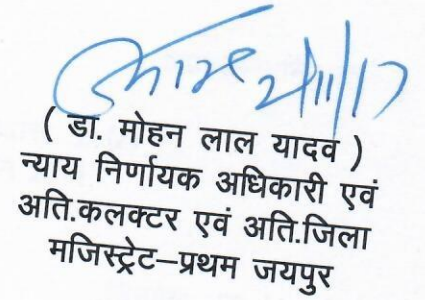 2/11/17
( डा. मोहन लाल यादव )
न्याय निर्णायक अधिकारी एवं
अति.कलक्टर एवं अति.जिला
मजिस्ट्रेट–प्रथम जयपुर